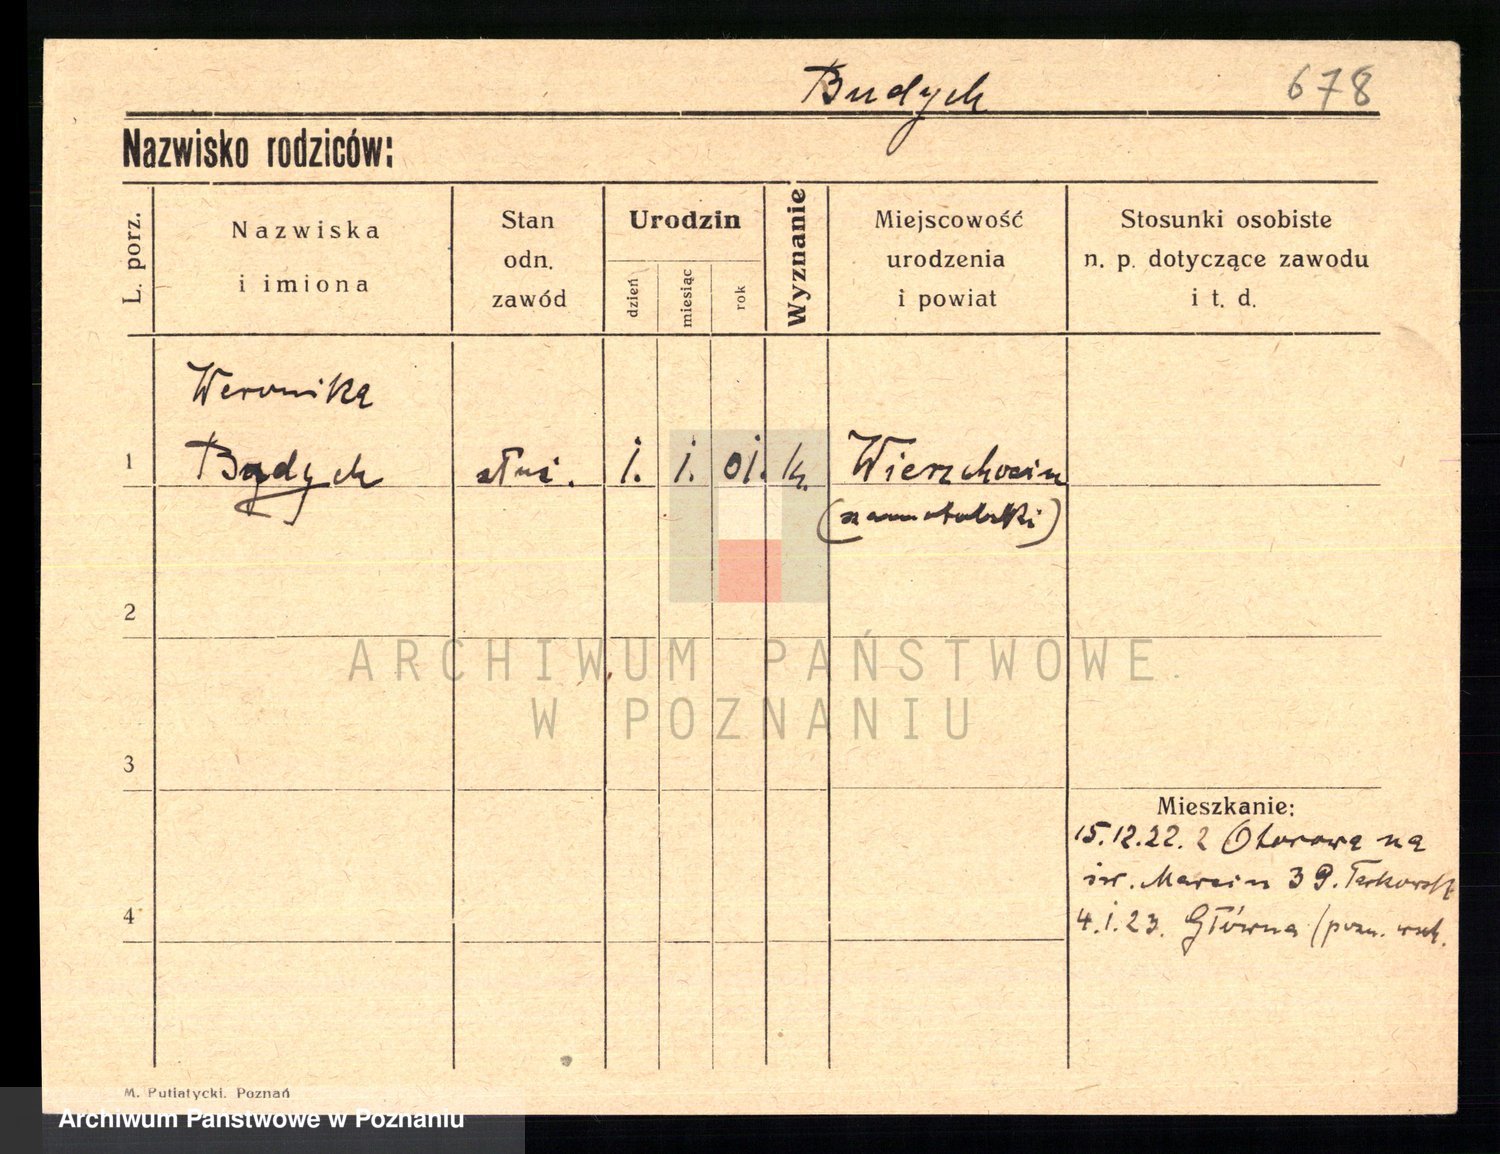 Budych 678
Nazwisko rodziców:
L. porz.
Nazwiska
i imiona
Stan
odn.
zawód
Urodzin
dzień
miesiąc
rok
Wyznanie
Miejscowość
urodzenia
i powiat
Stosunki osobiste
n. p. dotyczące zawodu
i t. d.
Weronika
1 Budych służ. 1. 1. 01. k. Wierzchocin
(szamotulski)
2
ARCHIWUM PAŃSTWOWE
W POZNANIU
3
Mieszkanie:
15.12.22. z Otorowa na
św. Marcin 39.
4.1.23. Główna (pozn. wsch.
4
M. Putiatycki. Poznań
Archiwum Państwowe w Poznaniu